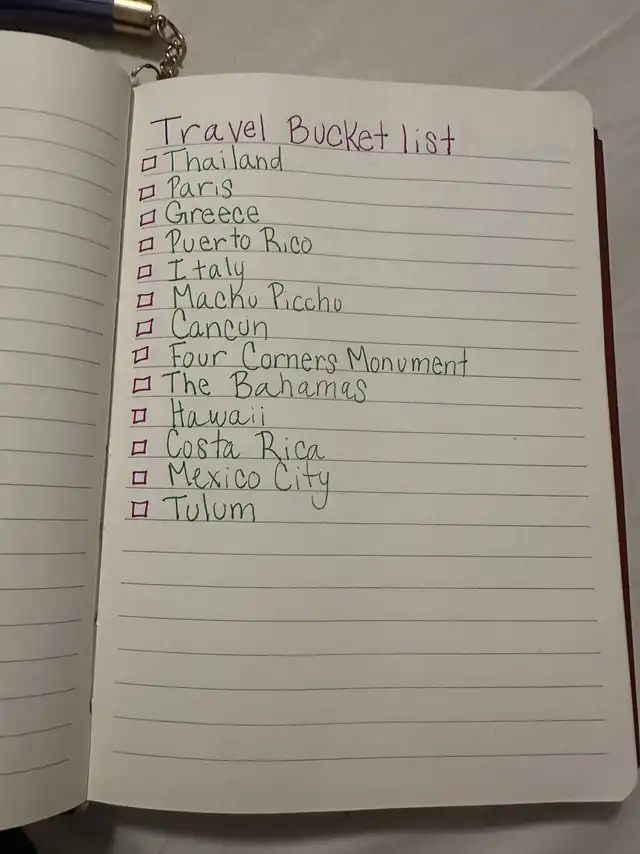 Travel Bucket list
Thailand
Paris
Greece
Puerto Rico
Italy
Machu Picchu
Cancun
Four Corners Monument
The Bahamas
Hawaii
Costa Rica
Mexico City
Tulum